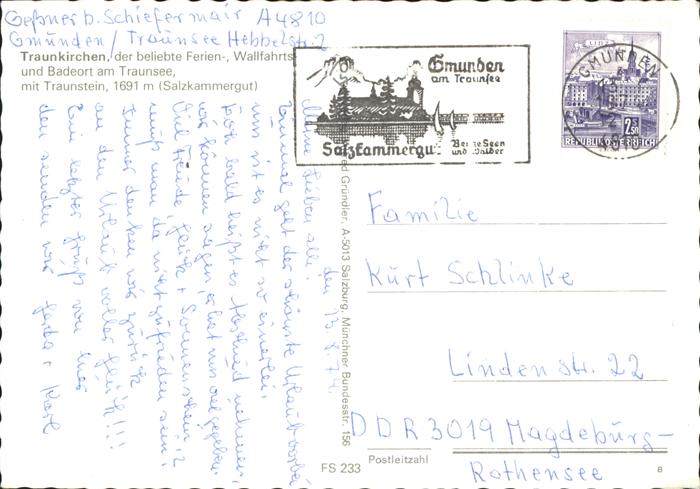 Geßner b. Schiefermair A4810
Gmunden / Traunsee Hebbelstr. 2
Traunkirchen, der beliebte Ferien-, Wallfahrts
und Badeort am Traunsee,
mit Traunstein, 1691 m (Salzkammergut)
Gmunden
am Traunsee
Salzkammergut
Berge Seen
und Wälder
LINZ
GMUNDEN
2.50
REPUBLIK ÖSTERREICH
den 13. 8. 74.
Meine Lieben alle.
Einmal geht der schönste Urlaub vorbei
uns ist es nicht so einerlei.
Doch bald heißt es Abschied nehmen,
wir können sagen es hat uns viel gegeben.
Viel Freude, Glück + Sonnenschein
muß man da nicht zufrieden sein.
Immer denken wir zurück
an den Urlaub voller Glück!!!
Ein letzter Gruß von hier
den senden wir Gerda + Karl
ed Gründler, A-5013 Salzburg, Münchner Bundesstr. 156
Familie
Kurt Schlinke
Lindenstr. 22
DDR 3019 Magdeburg-
Rothensee
Postleitzahl
FS 233
8